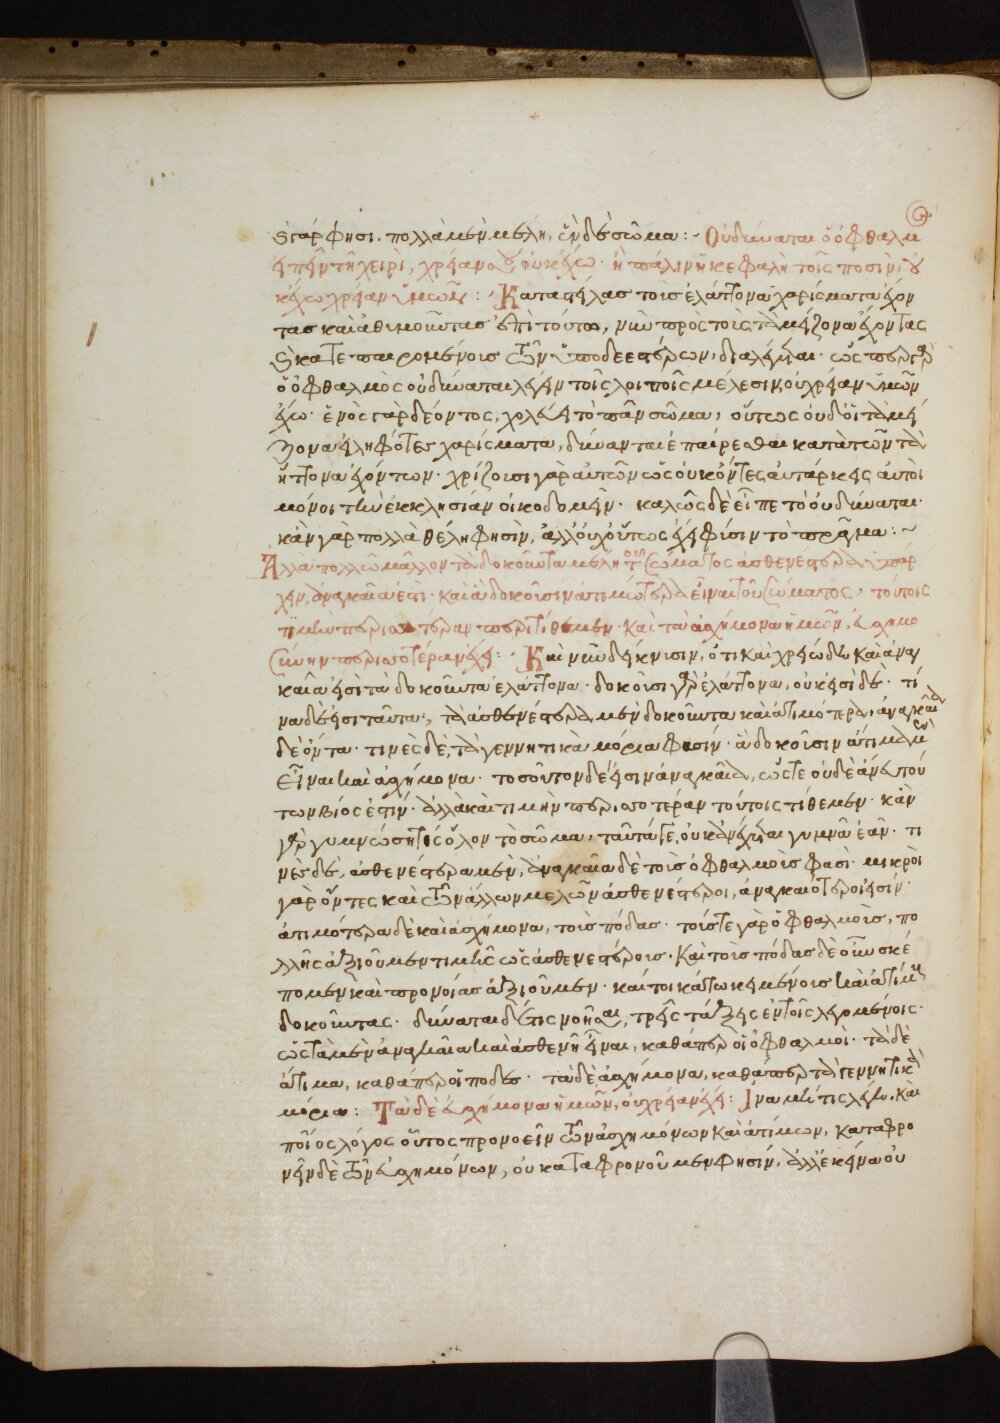 γάρ φησι. πολλὰ μὲν μέλη, ἓν δὲ σῶμα: ~ Οὐ δύναται ὁ ὀφθαλμ
εἰπεῖν τῇ χειρὶ, χρείαν σου οὐκ ἔχω. ἢ πάλιν ἡ κεφαλὴ τοῖς ποσὶν, οὐ
κ ἔχω χρείαν ὑμῶν: Καταστείλας τοὺς ἐλάττονα χαρίσματα ἔχον
τας καὶ ἀθυμοῦντας ἐπὶ τούτῳ, νῦν πρὸς τοὺς τὰ μείζονα ἔχοντας
καὶ κατεπαιρομένους τῶν ὑποδεεστέρων, διαλέγεται. ὥσπερ γὰρ
ὁ ὀφθαλμὸς οὐ δύναται λέγειν τοῖς λοιποῖς μέλεσιν, οὐ χρείαν ὑμῶν
ἔχω. ἑνὸς γὰρ δέοντος, χολεύει τὸ πᾶν σῶμα, οὕτως οὐδ' οἱ τὰ μεί
ζονα εἰληφότες χαρίσματα, δύνανται ἐπαίρεσθαι κατὰ τῶν τὰ
ἥττονα ἐχόντων. χρήζουσι γὰρ αὐτῶν ὡς οὐκ ὄντες αὐτάρκεις αὐτοὶ
μόνοι τὴν ἐκκλησίαν οἰκοδομεῖν. καλῶς δὲ εἶπε τὸ οὐ δύναται.
κἂν γὰρ πολλὰ θέλῃ φησὶν, ἀλλ' οὐχ οὕτως ἔχει φύσιν τὸ πρᾶγμα: ~
Ἀλλὰ πολλῷ μᾶλλον τὰ δοκοῦντα μέλη τοῦ σώματος ἀσθενέστερα ὑπάρ
χειν, ἀναγκαῖά ἐστι. καὶ ἃ δοκοῦσιν ἀτιμότερα εἶναι τοῦ σώματος, τούτοις
τιμὴν περισσοτέραν περιτίθεμεν. καὶ τὰ ἀσχήμονα ἡμῶν, εὐσχημο
σύνην περισσοτέραν ἔχει: Καὶ νῦν δείκνυσιν, ὅτι καὶ χρειώδη καὶ ἀναγ
καῖα εἰσὶ τὰ δοκοῦντα ἐλάττονα. δοκοῦσι γὰρ ἐλάττονα, οὐκ εἰσὶ δέ. τί
να δέ εἰσι ταῦτα, τὰ ἀσθενέστερα μὲν δοκοῦντα καὶ ἀτιμότερα, ἀναγκαῖα
δὲ ὄντα. τινὲς δὲ, τὰ γεννητικὰ μόρια φασίν. ἃ δοκοῦσιν ἄτιμα μὲν
εἶναι καὶ ἀσχήμονα. τοσοῦτον δέ εἰσιν ἀναγκαῖα, ὥστε οὐδὲ ἄνευ του
των βίος ἐστίν. ἀλλὰ καὶ τιμὴν περισσοτέραν τούτοις τίθεμεν. κἂν
γὰρ γυμνώσῃ τις ὅλον τὸ σῶμα, ταῦτά γε, οὐκ ἀνέχεται γυμνὰ ἐᾶν. τι
νὲς δὲ, ἀσθενέστερα μὲν, ἀναγκαῖα δὲ τοὺς ὀφθαλμούς φασι. μικροὶ
γὰρ ὄντες καὶ τῶν ἄλλων μελῶν ἀσθενέστεροι, ἀναγκαιότεροι εἰσίν.
ἀτιμότερα δὲ καὶ ἀσχήμονα, τοὺς πόδας. τούς τε γὰρ ὀφθαλμοὺς, πο
λλῆς ἀξιοῦμεν τιμῆς ὡς ἀσθενεστέρους. καὶ τοὺς πόδας δὲ οὖν σκέ
πομεν καὶ προνοίας ἀξιοῦμεν. καίτοι κάτω κειμένους καὶ ἀτίμους
δοκοῦντας. δύναται δέ τις νοῆσαι, τρεῖς τάξεις ἐν τοῖς λεγομένοις.
ὡς τὰ μὲν ἀναγκαῖα καὶ ἀσθενῆ εἶναι, καθάπερ οἱ ὀφθαλμοί. τὰ δὲ
ἄτιμα, καθάπερ οἱ πόδες. τὰ δὲ ἀσχήμονα, καθάπερ τὰ γεννητικὰ
μόρια: Τὰ δὲ εὐσχήμονα ἡμῶν, οὐ χρείαν ἔχει: Ἵνα μή τις λέγῃ, καὶ
ποῖος λόγος οὗτος προνοεῖν τῶν ἀσχημόνων καὶ ἀτίμων, καταφρο
νεῖν δὲ τῶν εὐσχημόνων, οὐ καταφρονοῦμεν φησὶν, ἀλλ' ἐκεῖνα οὐ